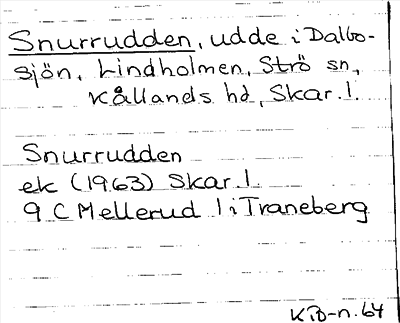 Snurrudden, udde i Dalbo-
sjön, Lindholmen, Strö sn,
Kållands hd, Skar. l.
Snurrudden
ek (1963) Skar. l.
9 C Mellerud 1 i Traneberg
KiD-n. 64